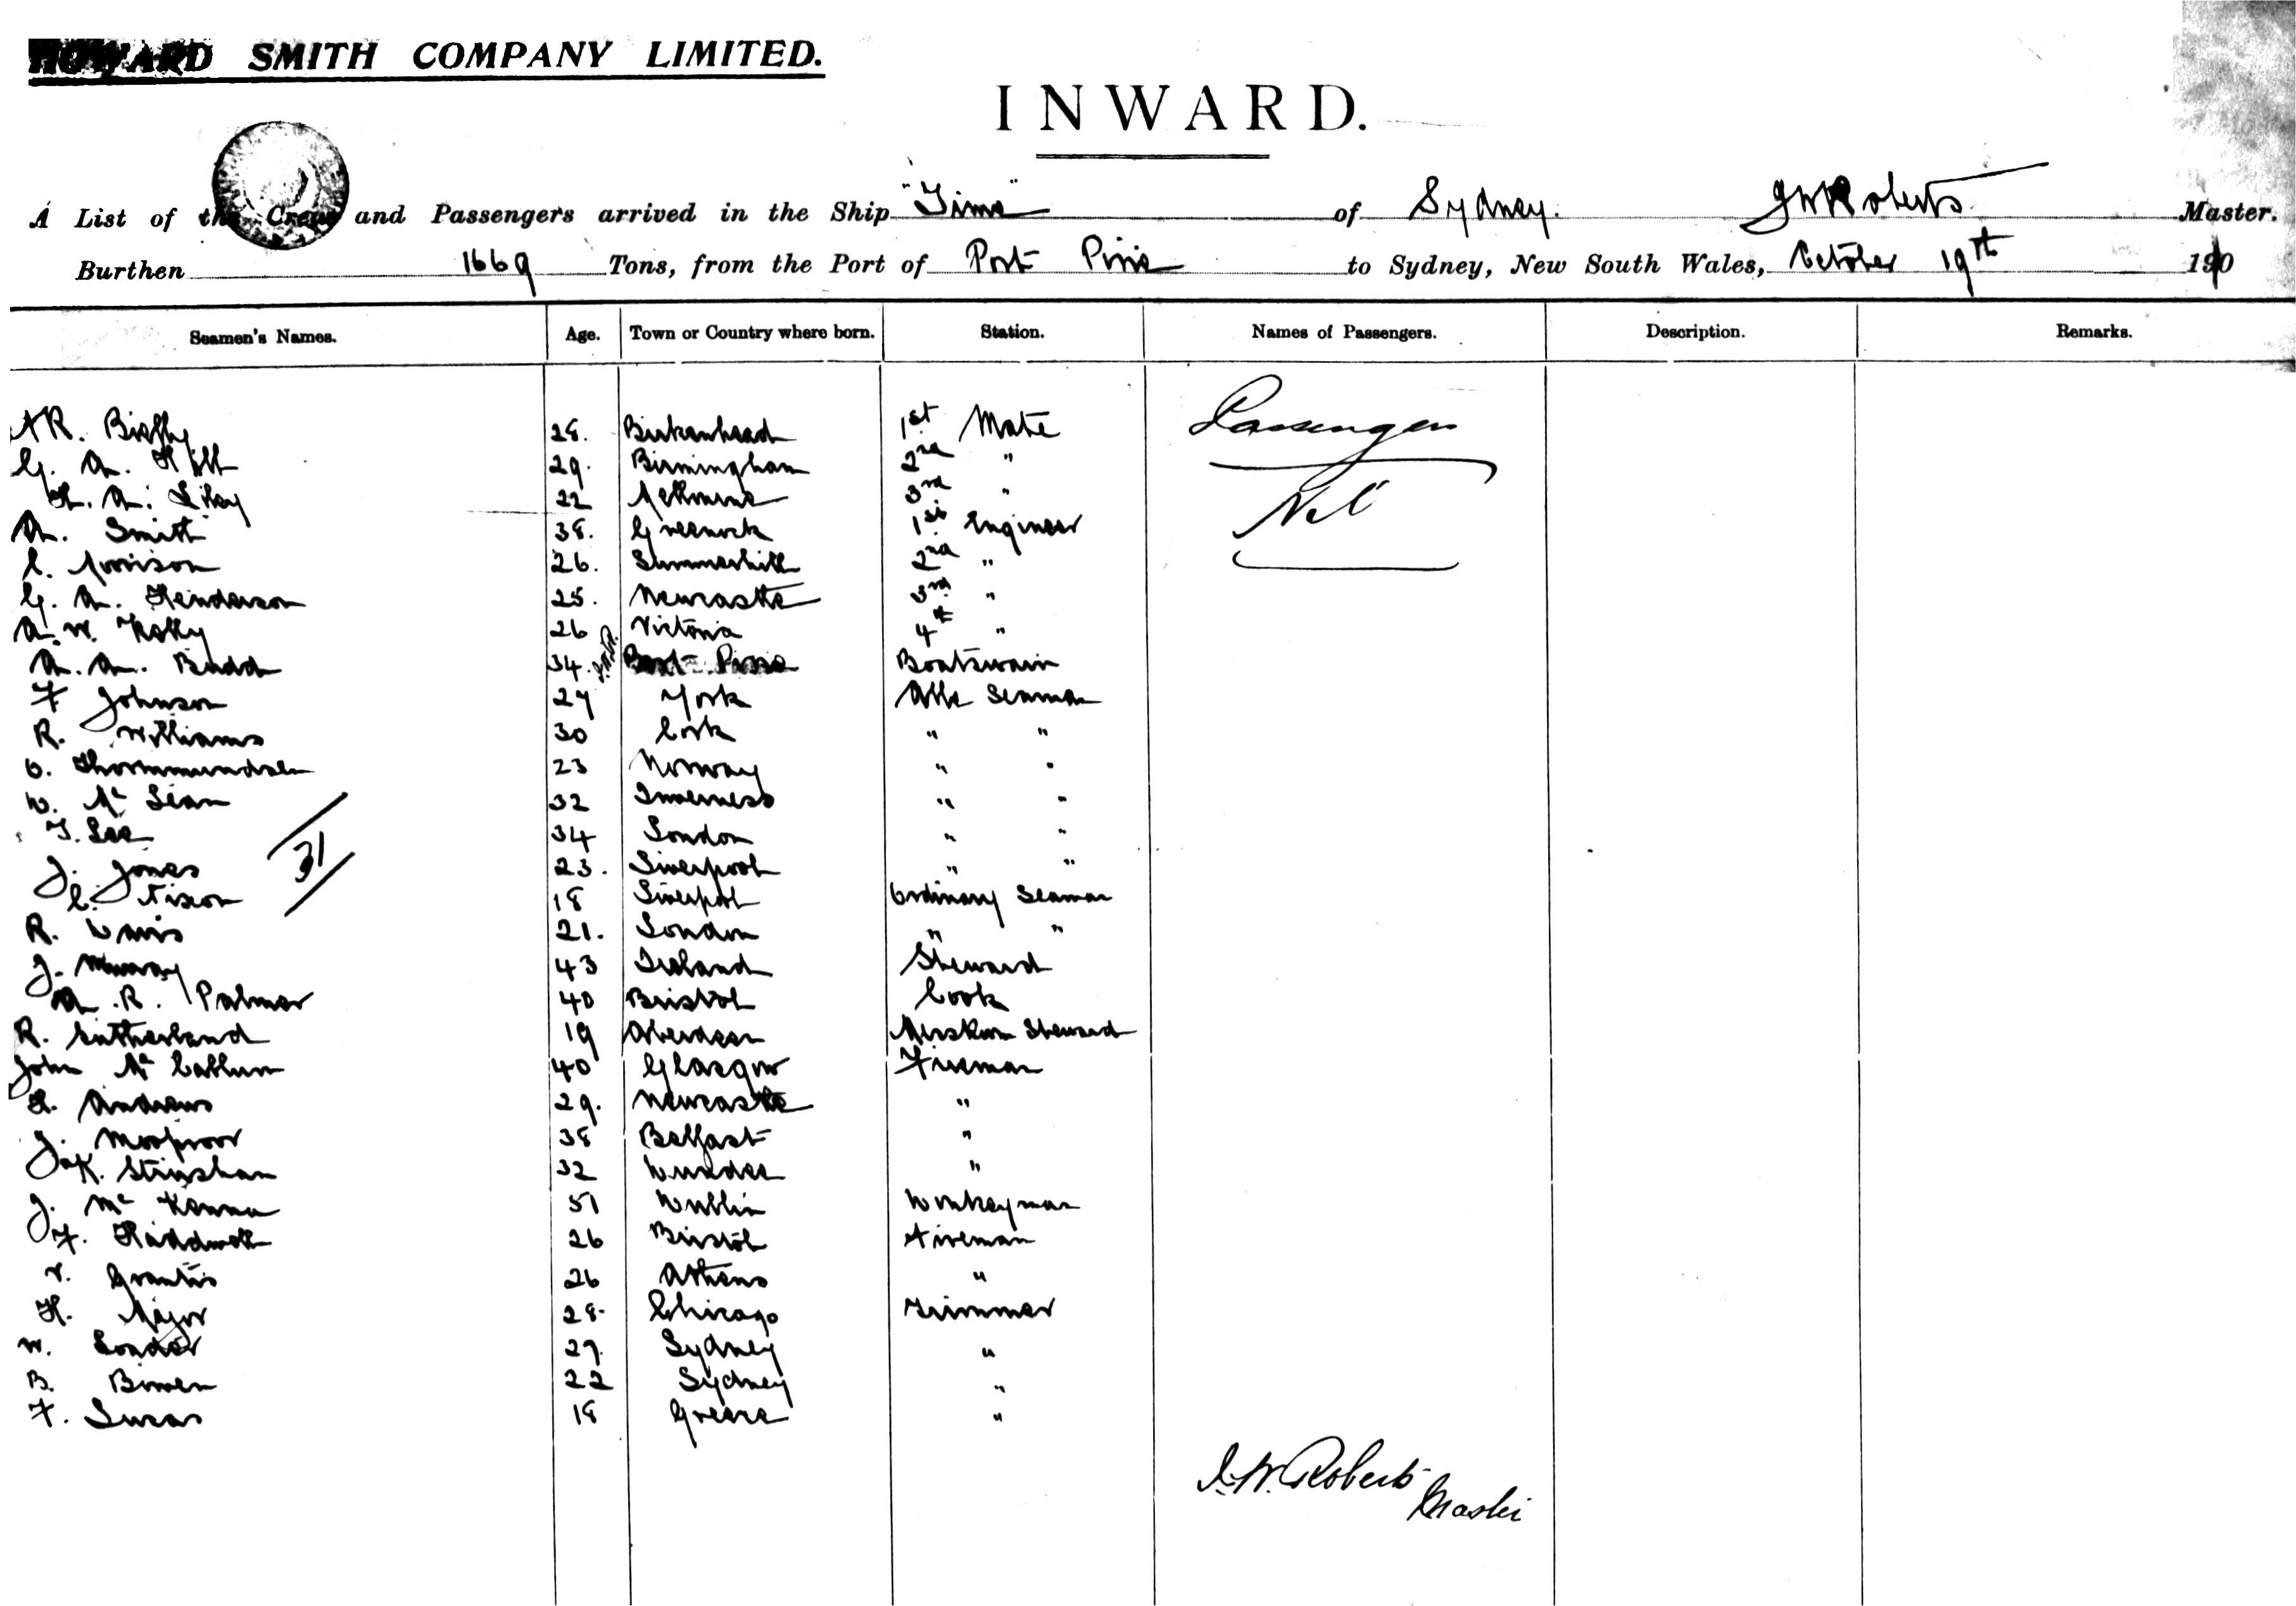 HOWARD SMITH COMPANY LIMITED.
INWARD.
A List of the Crew and Passengers arrived in the Ship "Time" of Sydney. J W Roberts Master.
Burthen 1669 Tons, from the Port of Port Pirie to Sydney, New South Wales, October 19th 1910
Seamen's Names. Age. Town or Country where born. Station. Names of Passengers. Description. Remarks.
28. Birkenhead 1st Mate Passengers
G. A. Hill 29. Birmingham 2nd "
22 Melbourne 3rd " Nil
A. Smith 38. Greenock 1st Engineer
C. Morrison 26. Summerhill 2nd "
G. A. Henderson 25. Newcastle 3rd "
A. W. Kelly 26 Victoria 4th "
A. A. Budd 34 Port Pirie Boatswain
F Johnson 27 York Able Seaman
R. Williams 30 Cork " "
O. Thorммundsen 23 Norway " "
W. Mc Lean 32 Inverness " "
T. Lee 34 London " "
31
J. Jones 23. Liverpool " "
C. Nixon 18 Liverpool Ordinary Seaman
R. Davis 21. London " "
J. Murray 43 Ireland Steward
A. R. Palmer 40 Bristol Cook
R. Sutherland 19 Aberdeen Messroom Steward
John Mc Callum 40 Glasgow Fireman
H. Andrews 29. Newcastle "
J. 38 Belfast "
32 Dundee "
J. Mc Kenna 51 Dublin Donkeyman
F. Haddrell 26 Bristol Fireman
V. Grantis 26 Athens "
H. Major 28. Chicago Trimmer
W. 29. Sydney "
B. Bowen 22 Sydney "
F. Lucas 18 Greece "
J. W. Roberts
Master